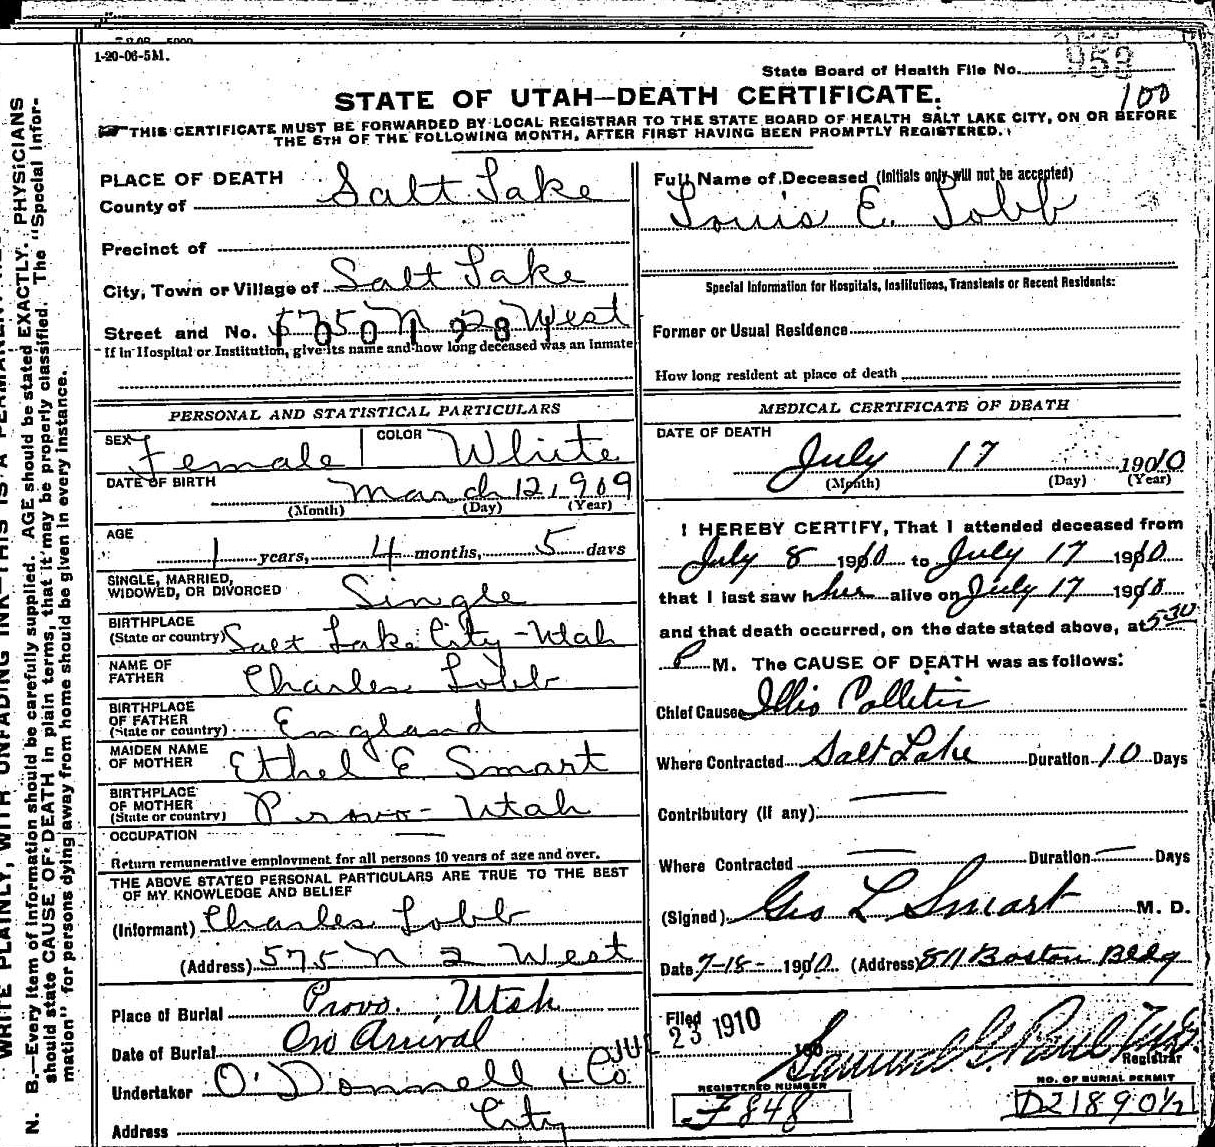 1-20-06-5M.
State Board of Health File No. 952
100
STATE OF UTAH—DEATH CERTIFICATE.
THIS CERTIFICATE MUST BE FORWARDED BY LOCAL REGISTRAR TO THE STATE BOARD OF HEALTH SALT LAKE CITY, ON OR BEFORE
THE 5TH OF THE FOLLOWING MONTH, AFTER FIRST HAVING BEEN PROMPTLY REGISTERED.
PLACE OF DEATH
County of Salt Lake
Precinct of
City, Town or Village of Salt Lake
Street and No. 575 N 2 West
If in Hospital or Institution, give its name and how long deceased was an inmate
PERSONAL AND STATISTICAL PARTICULARS
SEX Female COLOR White
DATE OF BIRTH March 12, 1909
(Month) (Day) (Year)
AGE
1 years, 4 months, 5 days
SINGLE, MARRIED,
WIDOWED, OR DIVORCED Single
BIRTHPLACE
(State or country) Salt Lake City - Utah
NAME OF
FATHER Charles Lobb
BIRTHPLACE
OF FATHER
(State or country) England
MAIDEN NAME
OF MOTHER Ethel E. Smart
BIRTHPLACE
OF MOTHER
(State or country) Provo - Utah
OCCUPATION —
Return remunerative employment for all persons 10 years of age and over.
THE ABOVE STATED PERSONAL PARTICULARS ARE TRUE TO THE BEST
OF MY KNOWLEDGE AND BELIEF
(Informant) Charles Lobb
(Address) 575 N 2 West
Place of Burial Provo, Utah
Date of Burial On Arrival
Undertaker O'Donnell & Co.
Address City
Full Name of Deceased (Initials only will not be accepted)
Louis E. Lobb
Special Information for Hospitals, Institutions, Transients or Recent Residents:
Former or Usual Residence
How long resident at place of death
MEDICAL CERTIFICATE OF DEATH
DATE OF DEATH
July 17 1910
(Month) (Day) (Year)
I HEREBY CERTIFY, That I attended deceased from
July 8 1910 to July 17 1910
that I last saw h her alive on July 17 1910
and that death occurred, on the date stated above, at 5:30
P M. The CAUSE OF DEATH was as follows:
Chief Cause Illio Collitis
Where Contracted Salt Lake Duration 10 Days
Contributory (if any) —
Where Contracted — Duration — Days
(Signed) Geo L Smart M. D.
Date 7-18- 1910 (Address) 811 Boston Bldg
Filed JUL 23 1910
Samuel G. Paul M.D.
Registrar
REGISTERED NUMBER
F848
NO. OF BURIAL PERMIT
D21890½
N. B.—Every item of information should be carefully supplied. AGE should be stated EXACTLY. PHYSICIANS
should state CAUSE OF DEATH in plain terms, that it may be properly classified. The "Special Infor-
mation" for persons dying away from home should be given in every instance.